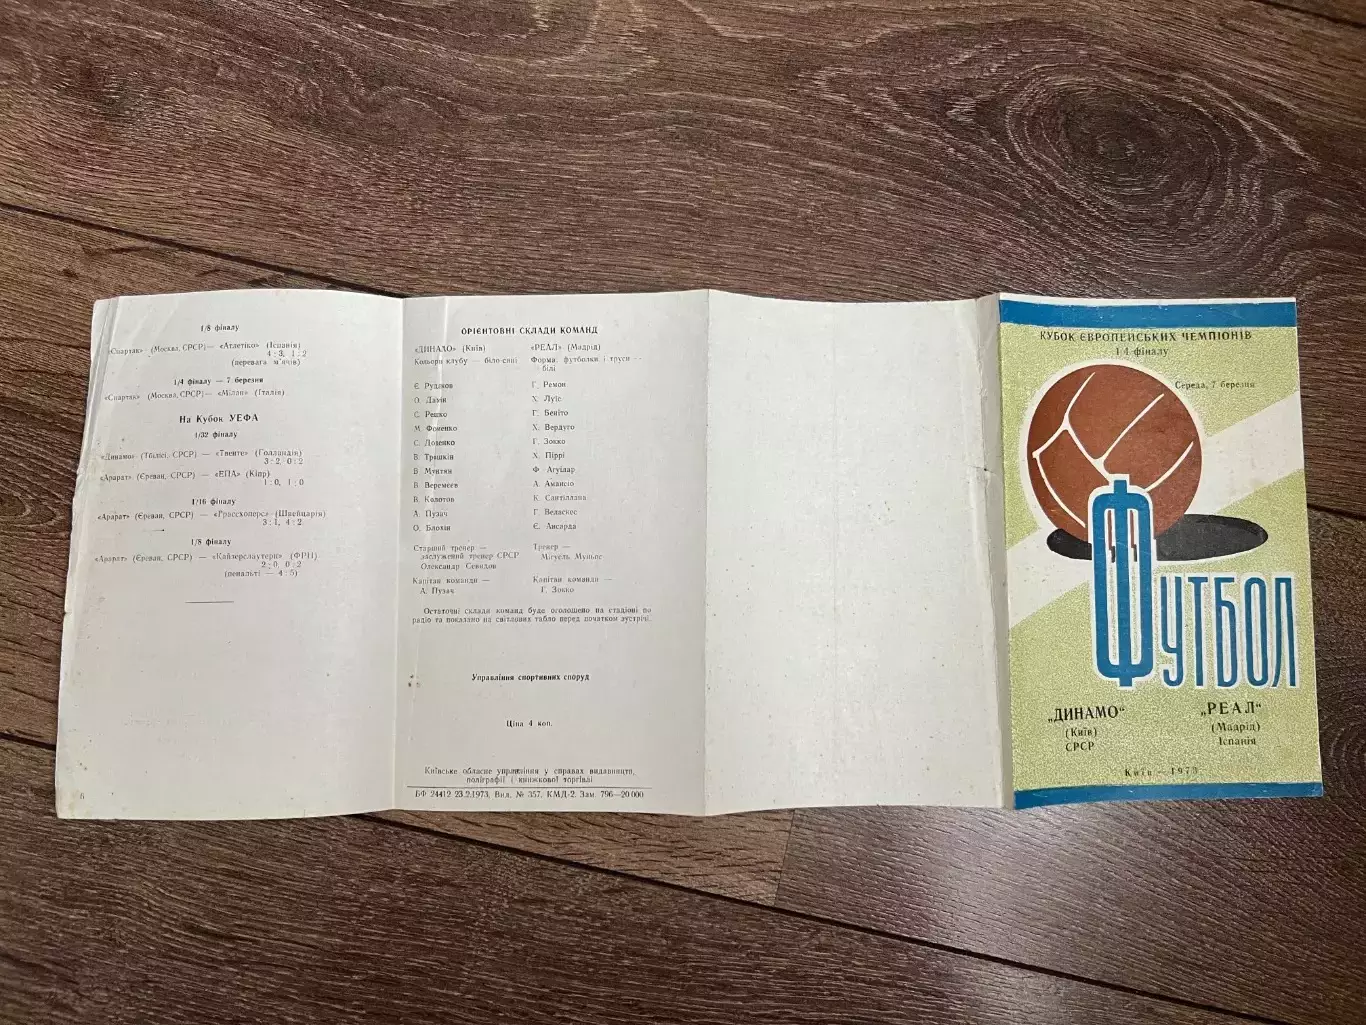 1/8 фіналу
«Спартак» (Москва, СРСР)— «Атлетіко» (Іспанія)
4:3, 1:2
(перевага м'ячів)
1/4 фіналу — 7 березня
«Спартак» (Москва, СРСР)— «Мілан» (Італія)
На Кубок УЕФА
1/32 фіналу
«Динамо» (Тбілісі, СРСР) — «Твенте» (Голландія)
3:2, 0:2
«Арарат» (Єреван, СРСР) — «ЕПА» (Кіпр)
1:0, 1:0
1/16 фіналу
«Арарат» (Єреван, СРСР) — «Грассхоперс» (Швейцарія)
3:1, 4:2
1/8 фіналу
«Арарат» (Єреван, СРСР) — «Кайзерслаутерн» (ФРН)
2:0, 0:2
(пенальті — 4:5)
6
ОРІЄНТОВНІ СКЛАДИ КОМАНД
«ДИНАМО» (Київ) «РЕАЛ» (Мадрід)
Кольори клубу — біло-сині Форма: футболки і труси —
білі
Є. Рудаков Г. Ремон
О. Дамін Х. Луїс
С. Решко Г. Беніто
М. Фоменко Х. Вердуго
С. Доценко Г. Зокко
В. Трошкін Х. Піррі
В. Мунтян Ф. Агуілар
В. Веремєєв А. Амансіо
В. Колотов К. Сантіллана
А. Пузач Г. Веласкес
О. Блохін Є. Ансарда
Старший тренер — Тренер —
заслужений тренер СРСР Мігуель Муньос
Олександр Севидов
Капітан команди — Капітан команди —
А. Пузач Г. Зокко
Остаточні склади команд буде оголошено на стадіоні по
радіо та показано на світловим табло перед початком зустрічі.
Управління спортивних споруд
Ціна 4 коп.
Київське обласне управління у справах видавництв,
поліграфії і книжкової торгівлі
БФ 24412 23.2.1973. Вид. № 357. КМД-2. Зам. 796—20 000
КУБОК ЄВРОПЕЙСЬКИХ ЧЕМПІОНІВ
1/4 фіналу
Середа, 7 березня
ФУТБОЛ
„ДИНАМО" „РЕАЛ"
(Київ) (Мадрід)
СРСР Іспанія
Київ — 1973